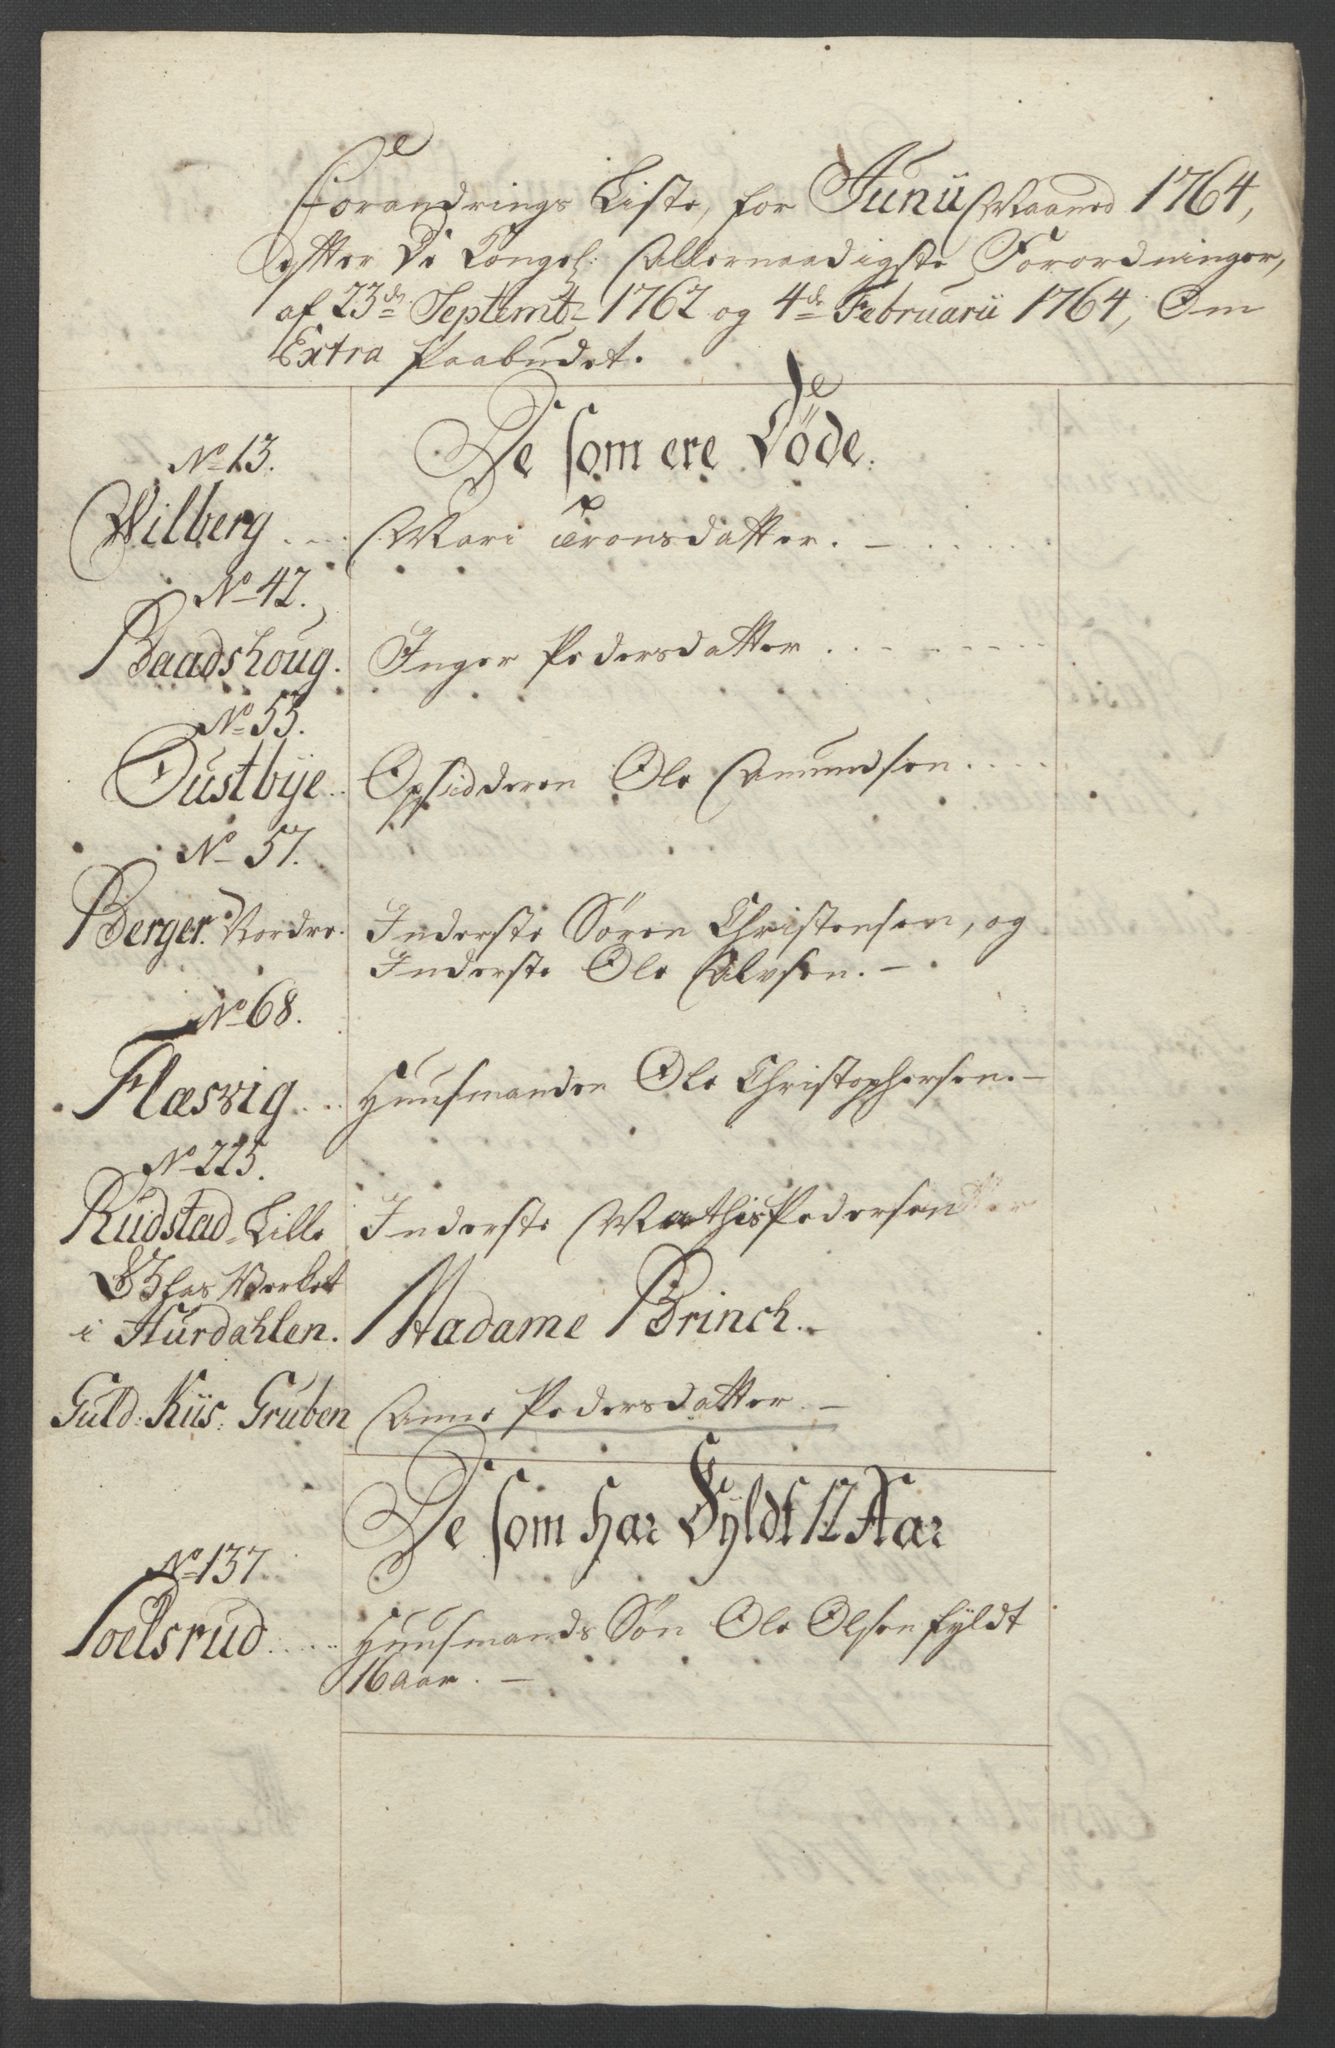 Forandrings Liste, for Junii Maaned 1764,
efter De Kongel: Allernaadigste Forordninger,
af 23de Septembr 1762 og 4de Februarii 1764, Om
Extra Paabudet.
De som ere Døde.
No 13.
Wilberg Mari Tronsdatter.
No 42.
Baadshoug. Inger Pedersdatter
No 55.
Oustbye Opsidderen Ole Amundsen
No 57.
Berger Nordre. Inderste Søren Christensen, og
Inderste Ole Alvsen.
No 68.
Flæsvig Huusmanden Ole Christophersen
No 225.
Rudstad Lille Inderste Mathis Pedersen
Glas Værket
i Hurdahlen. Madame Brinch.
Guld: Kiis: Gruben Anne Pedersdatter
De som har Fyldt 12 Aar
No 137
Poelsrud Huusmands Søn Ole Olsen fyldt
16 aar.